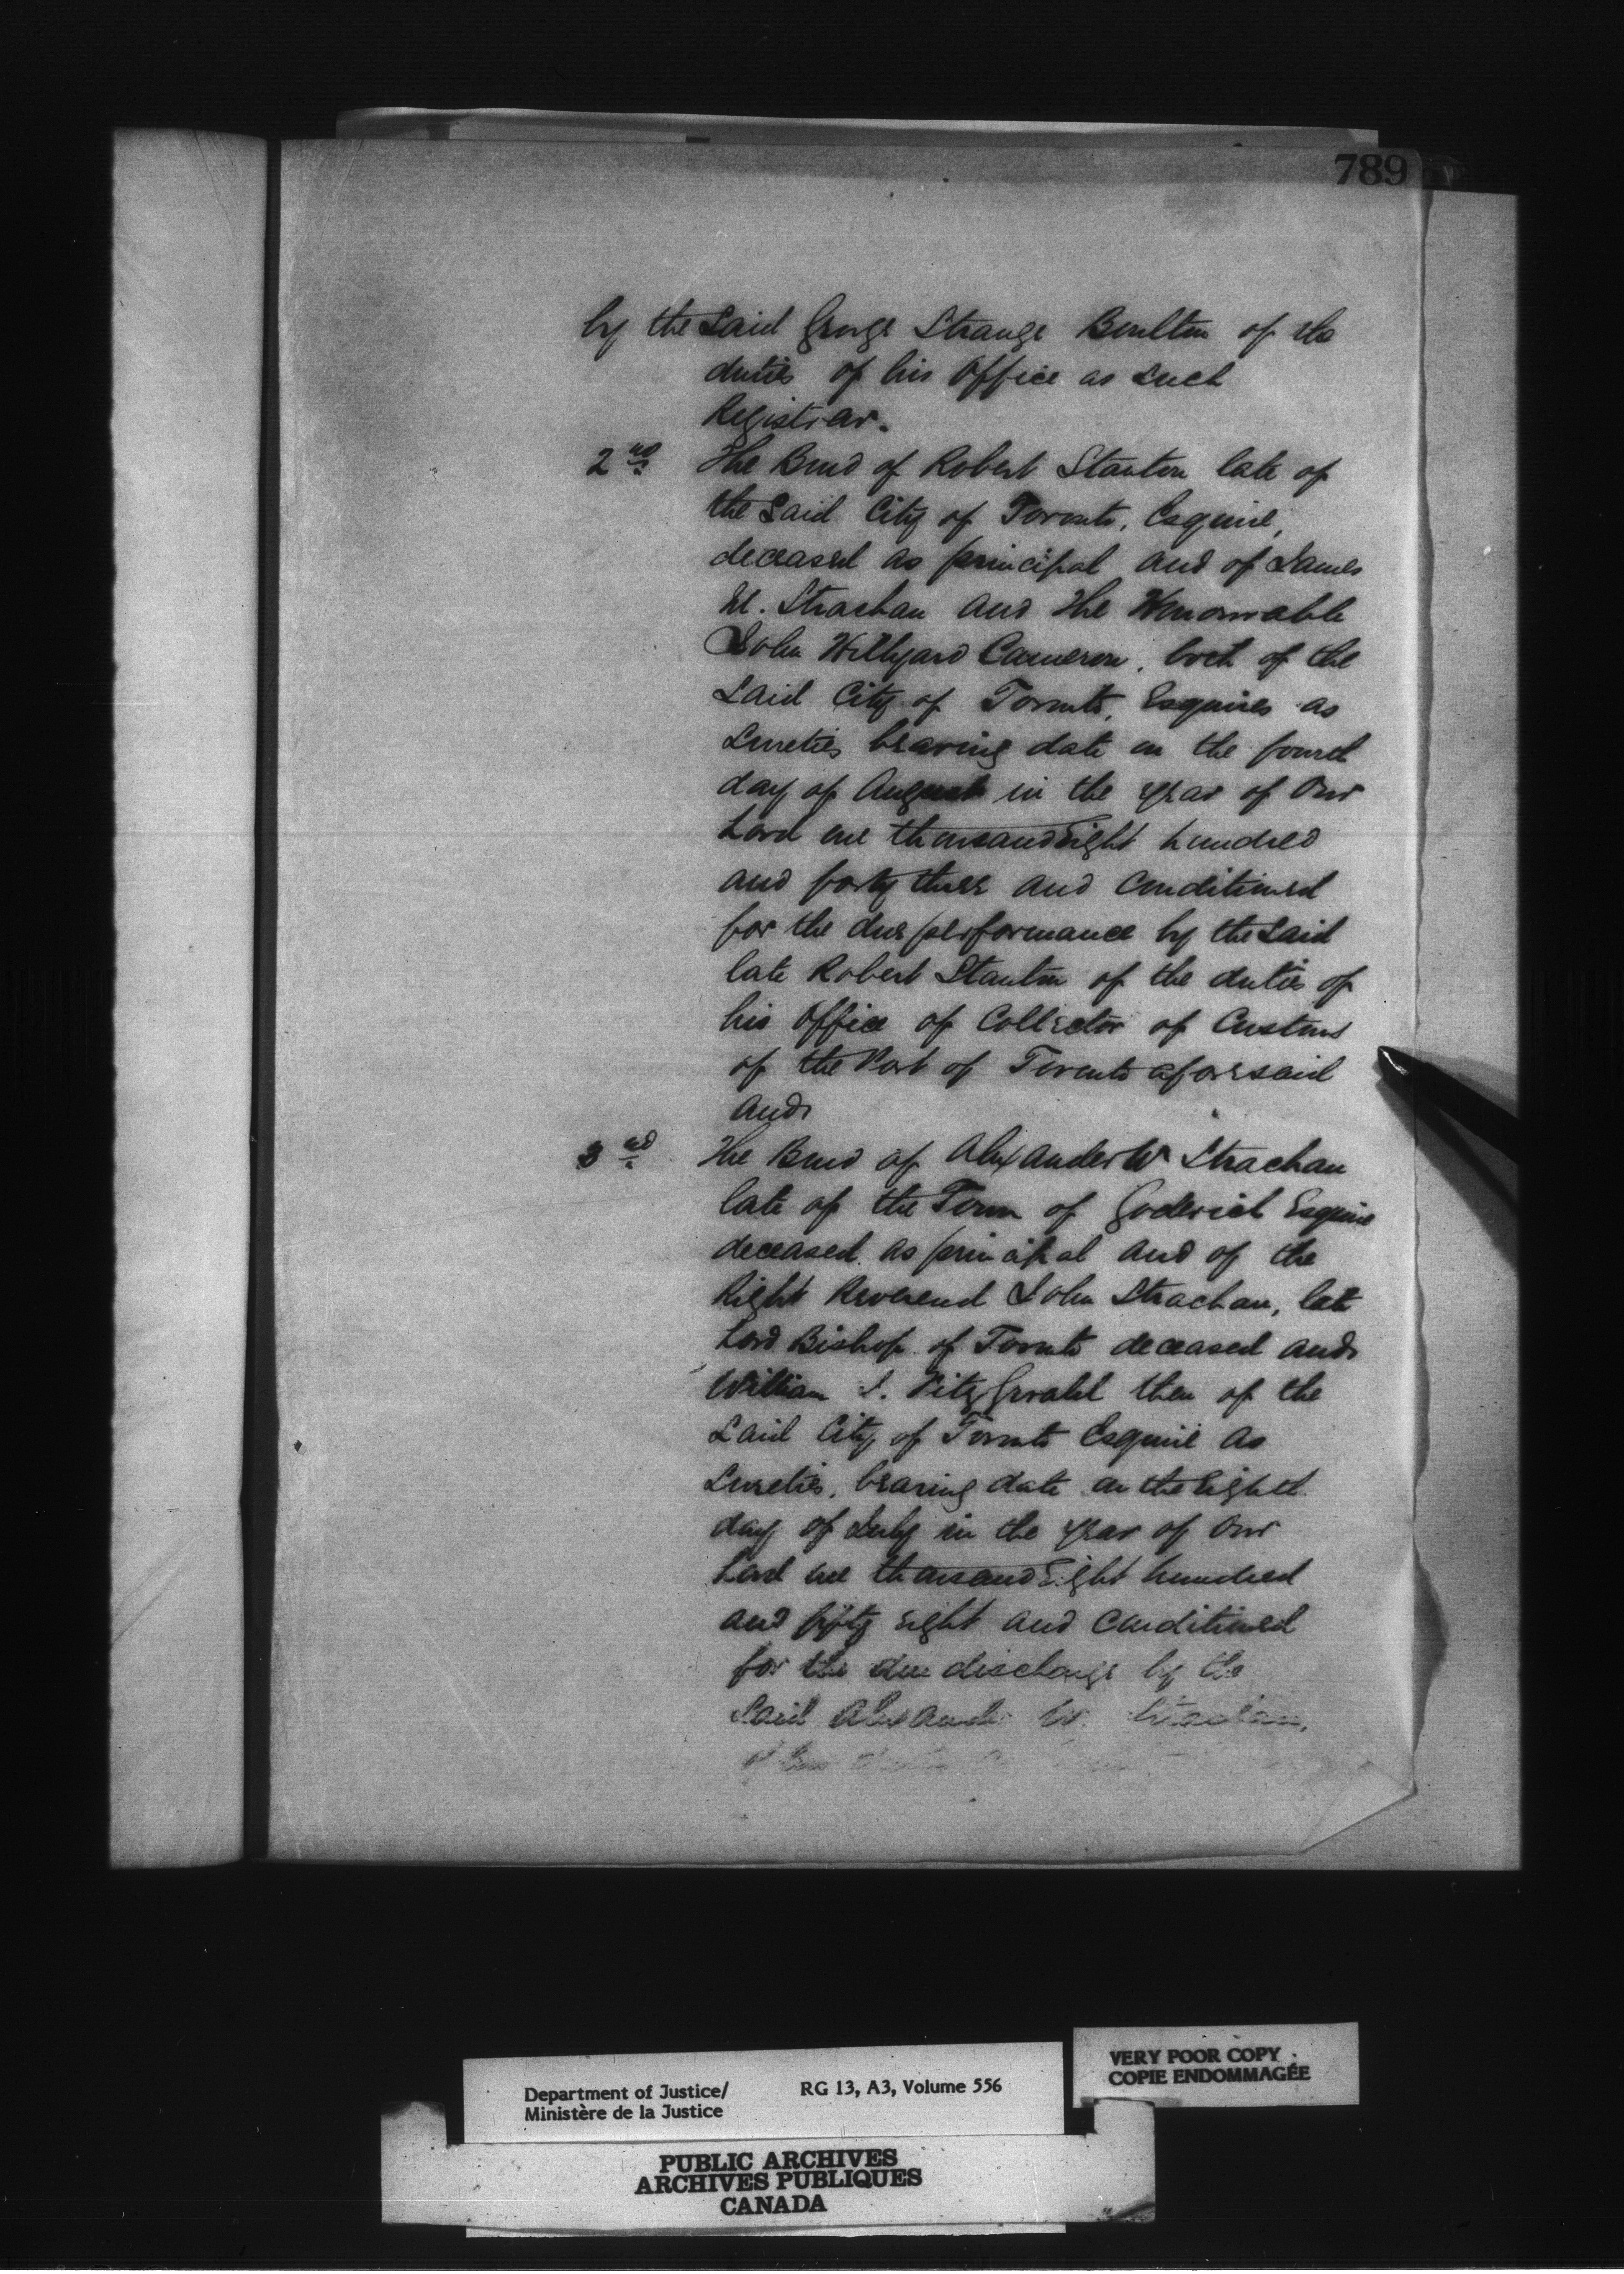 789
by the said George Strange Boulton of the
duties of his Office as such
Registrar.
2nd The Bond of Robert Stanton late of
the said City of Toronto, Esquire,
deceased as principal and of James
M. Strachan and the Honourable
John Hillyard Cameron, both of the
said City of Toronto, Esquires as
Sureties bearing date on the fourth
day of August in the year of Our
Lord one thousand eight hundred
and forty three and conditioned
for the due performance by the said
late Robert Stanton of the duties of
his Office of Collector of Customs
of the Port of Toronto aforesaid
and
3rd The Bond of Alexander W Strachan
late of the Town of Goderich Esquire
deceased as principal and of the
Right Reverend John Strachan, late
Lord Bishop of Toronto deceased and
William J. FitzGerald then of the
said City of Toronto Esquire as
Sureties, bearing date on the eighth
day of July in the year of Our
Lord one thousand eight hundred
and fifty eight and conditioned
for the due discharge by the
said Alexander W. Strachan,
VERY POOR COPY
COPIE ENDOMMAGÉE
Department of Justice/ RG 13, A3, Volume 556
Ministère de la Justice
PUBLIC ARCHIVES
ARCHIVES PUBLIQUES
CANADA